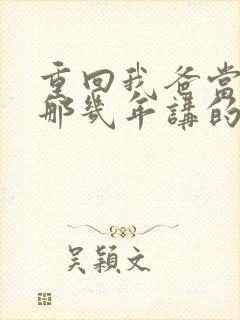 重回我爸當
那幾年講的
吳穎文